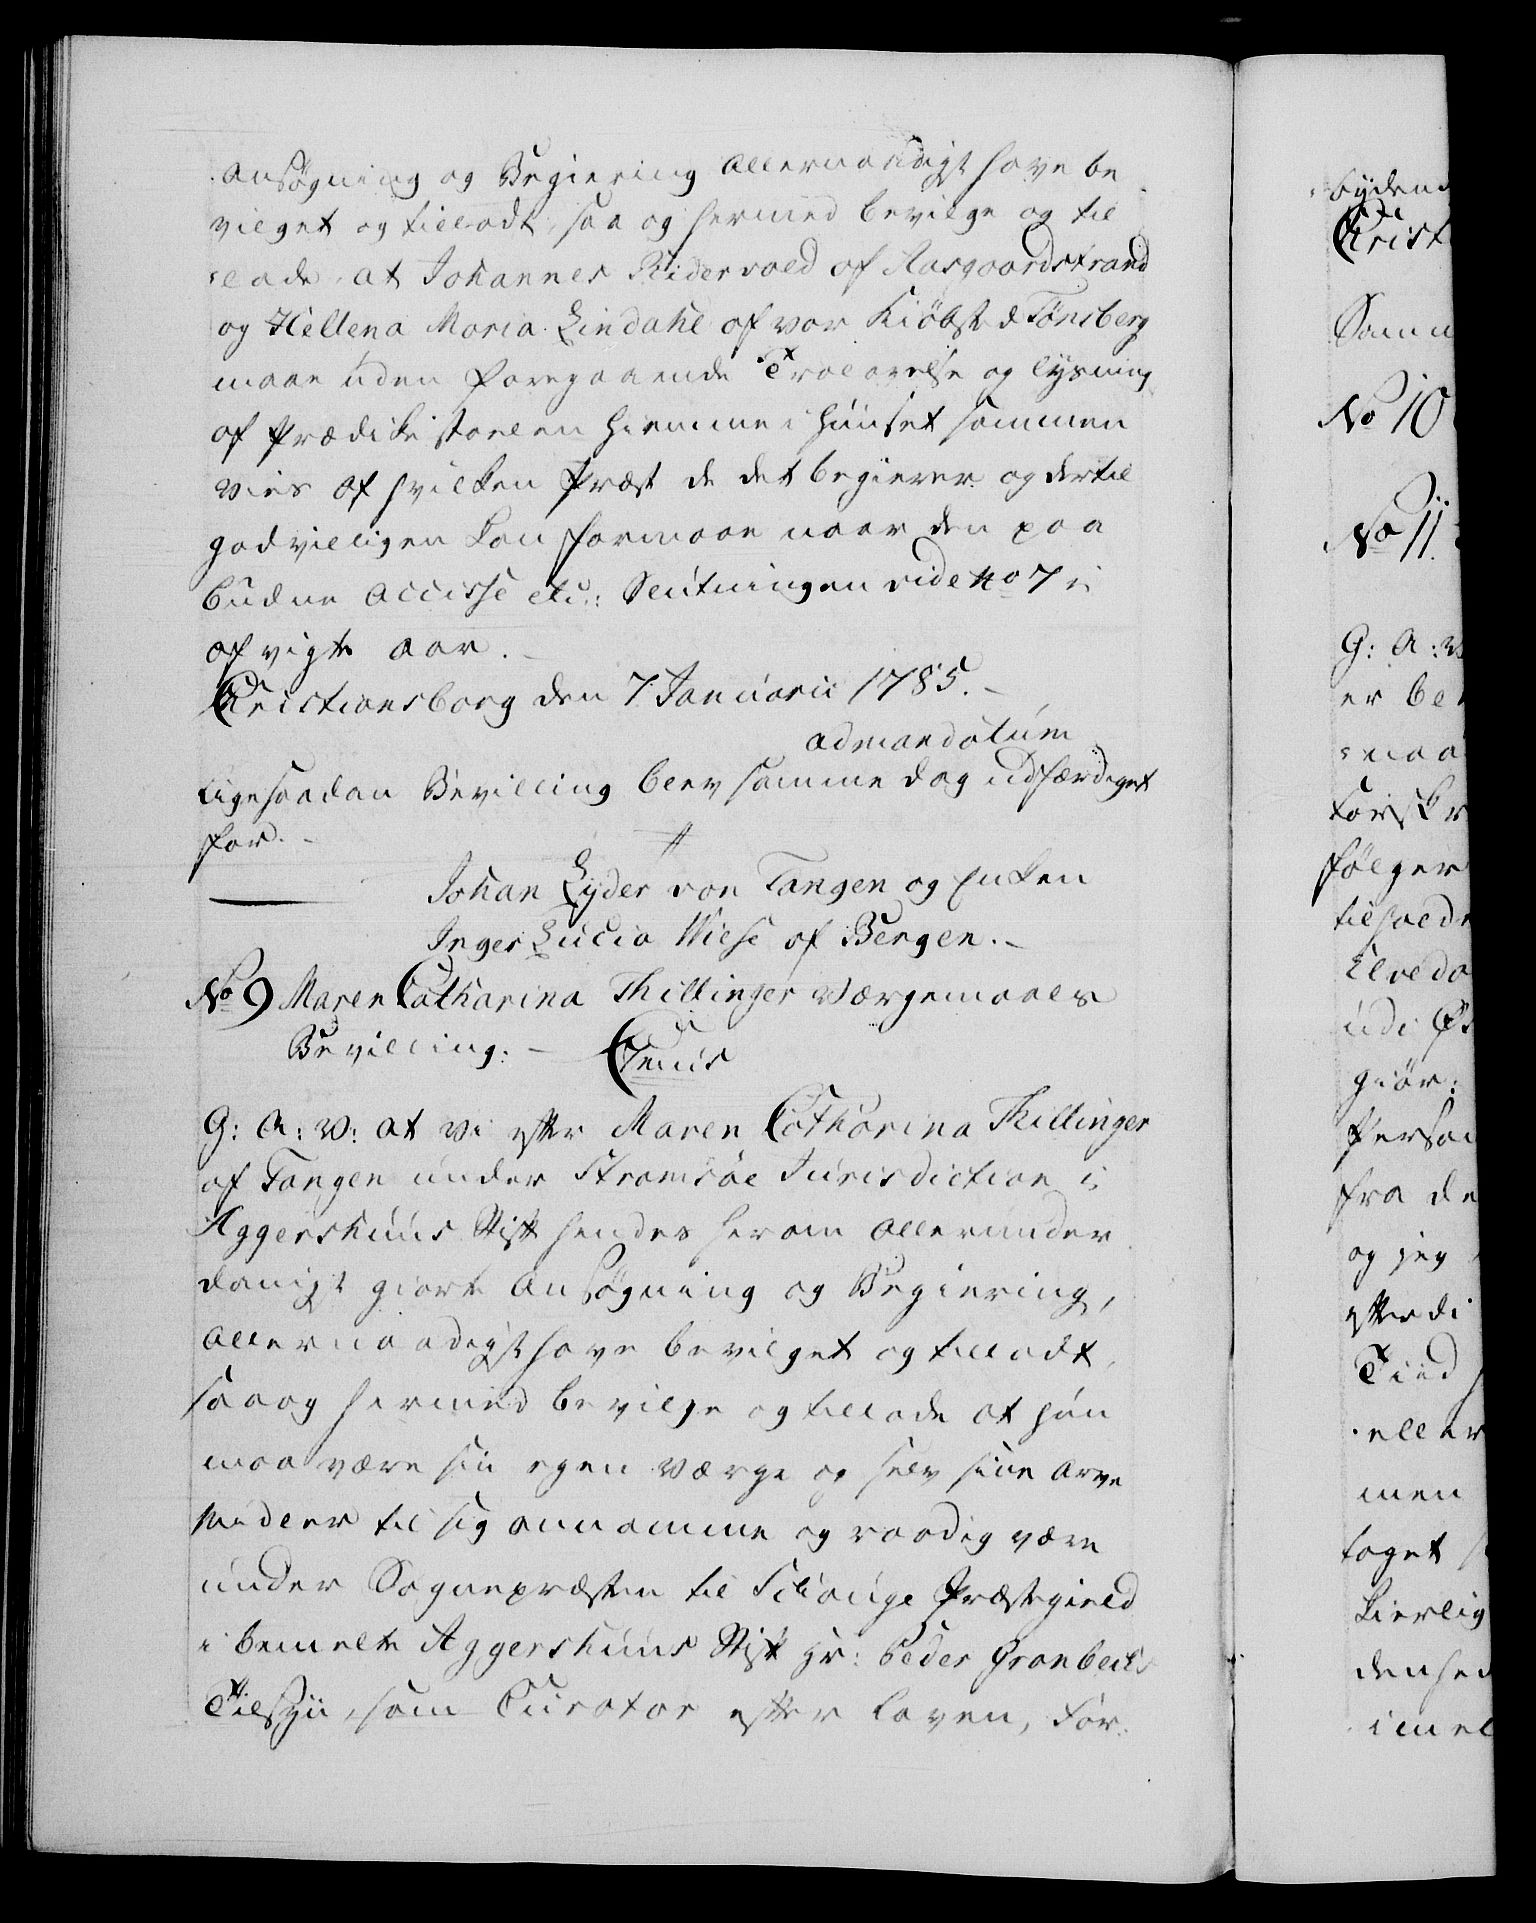 ansøgning og Begiering Allernaadigst have be
vilget og tilladt, saa og hermed bevilge og til
lade, at Johannes Ridervold af Aasgaardstrand
og Hellena Maria Lindahl af vor Kiøbsted Tønsberg
maae uden foregaaende Trolovelse og lysning
af Prædikestoelen hiemme i Huuset sammen
vies af hvilken Præst de det begierer og dertil
godvilligen kan formaae naar den paa
budne Accisse etc: Slutningen vide No 7 i
afvigte Aar.
Christiansborg den 7 Januarii 1785.
ad mandatum
Ligesaadan Bevilling blev samme dag udfærdiget
for.
Johan Lyder von Tangen og Enken
Inger Lucia Wiese af Bergen.
No 9 Maren Catharina Thillinger Værgemaals
Bevilling.
G: A: V: at vi efter Maren Catharina Thillinger
af Tangen under Strømsøe Jurisdiction i
Aggershuus Stift hendes herom allerunder
danigst giorte Ansøgning og Begiering,
Allernaadigst have bevilget og tilladt,
saa og hermed bevilge og tillade at hun
maa være sin egen Værge og selv sine Arve
Midler til sig annamme og raadig være
under Sognepræsten til Schouge Præstegield
i bemelte Aggershuus Stift Hr: Peder Grønbechs
Tilsyn, som Curator efter Loven, For¬
bydend
Christ
Samm
No 10
No 11
G: A: V
er be
naa
Forskr
følger
tilhold
Elveda
udi
giør:
Person
fra de
og jeg
efterdi
Tiid
eller
men
taget
kierlig
densed
imel